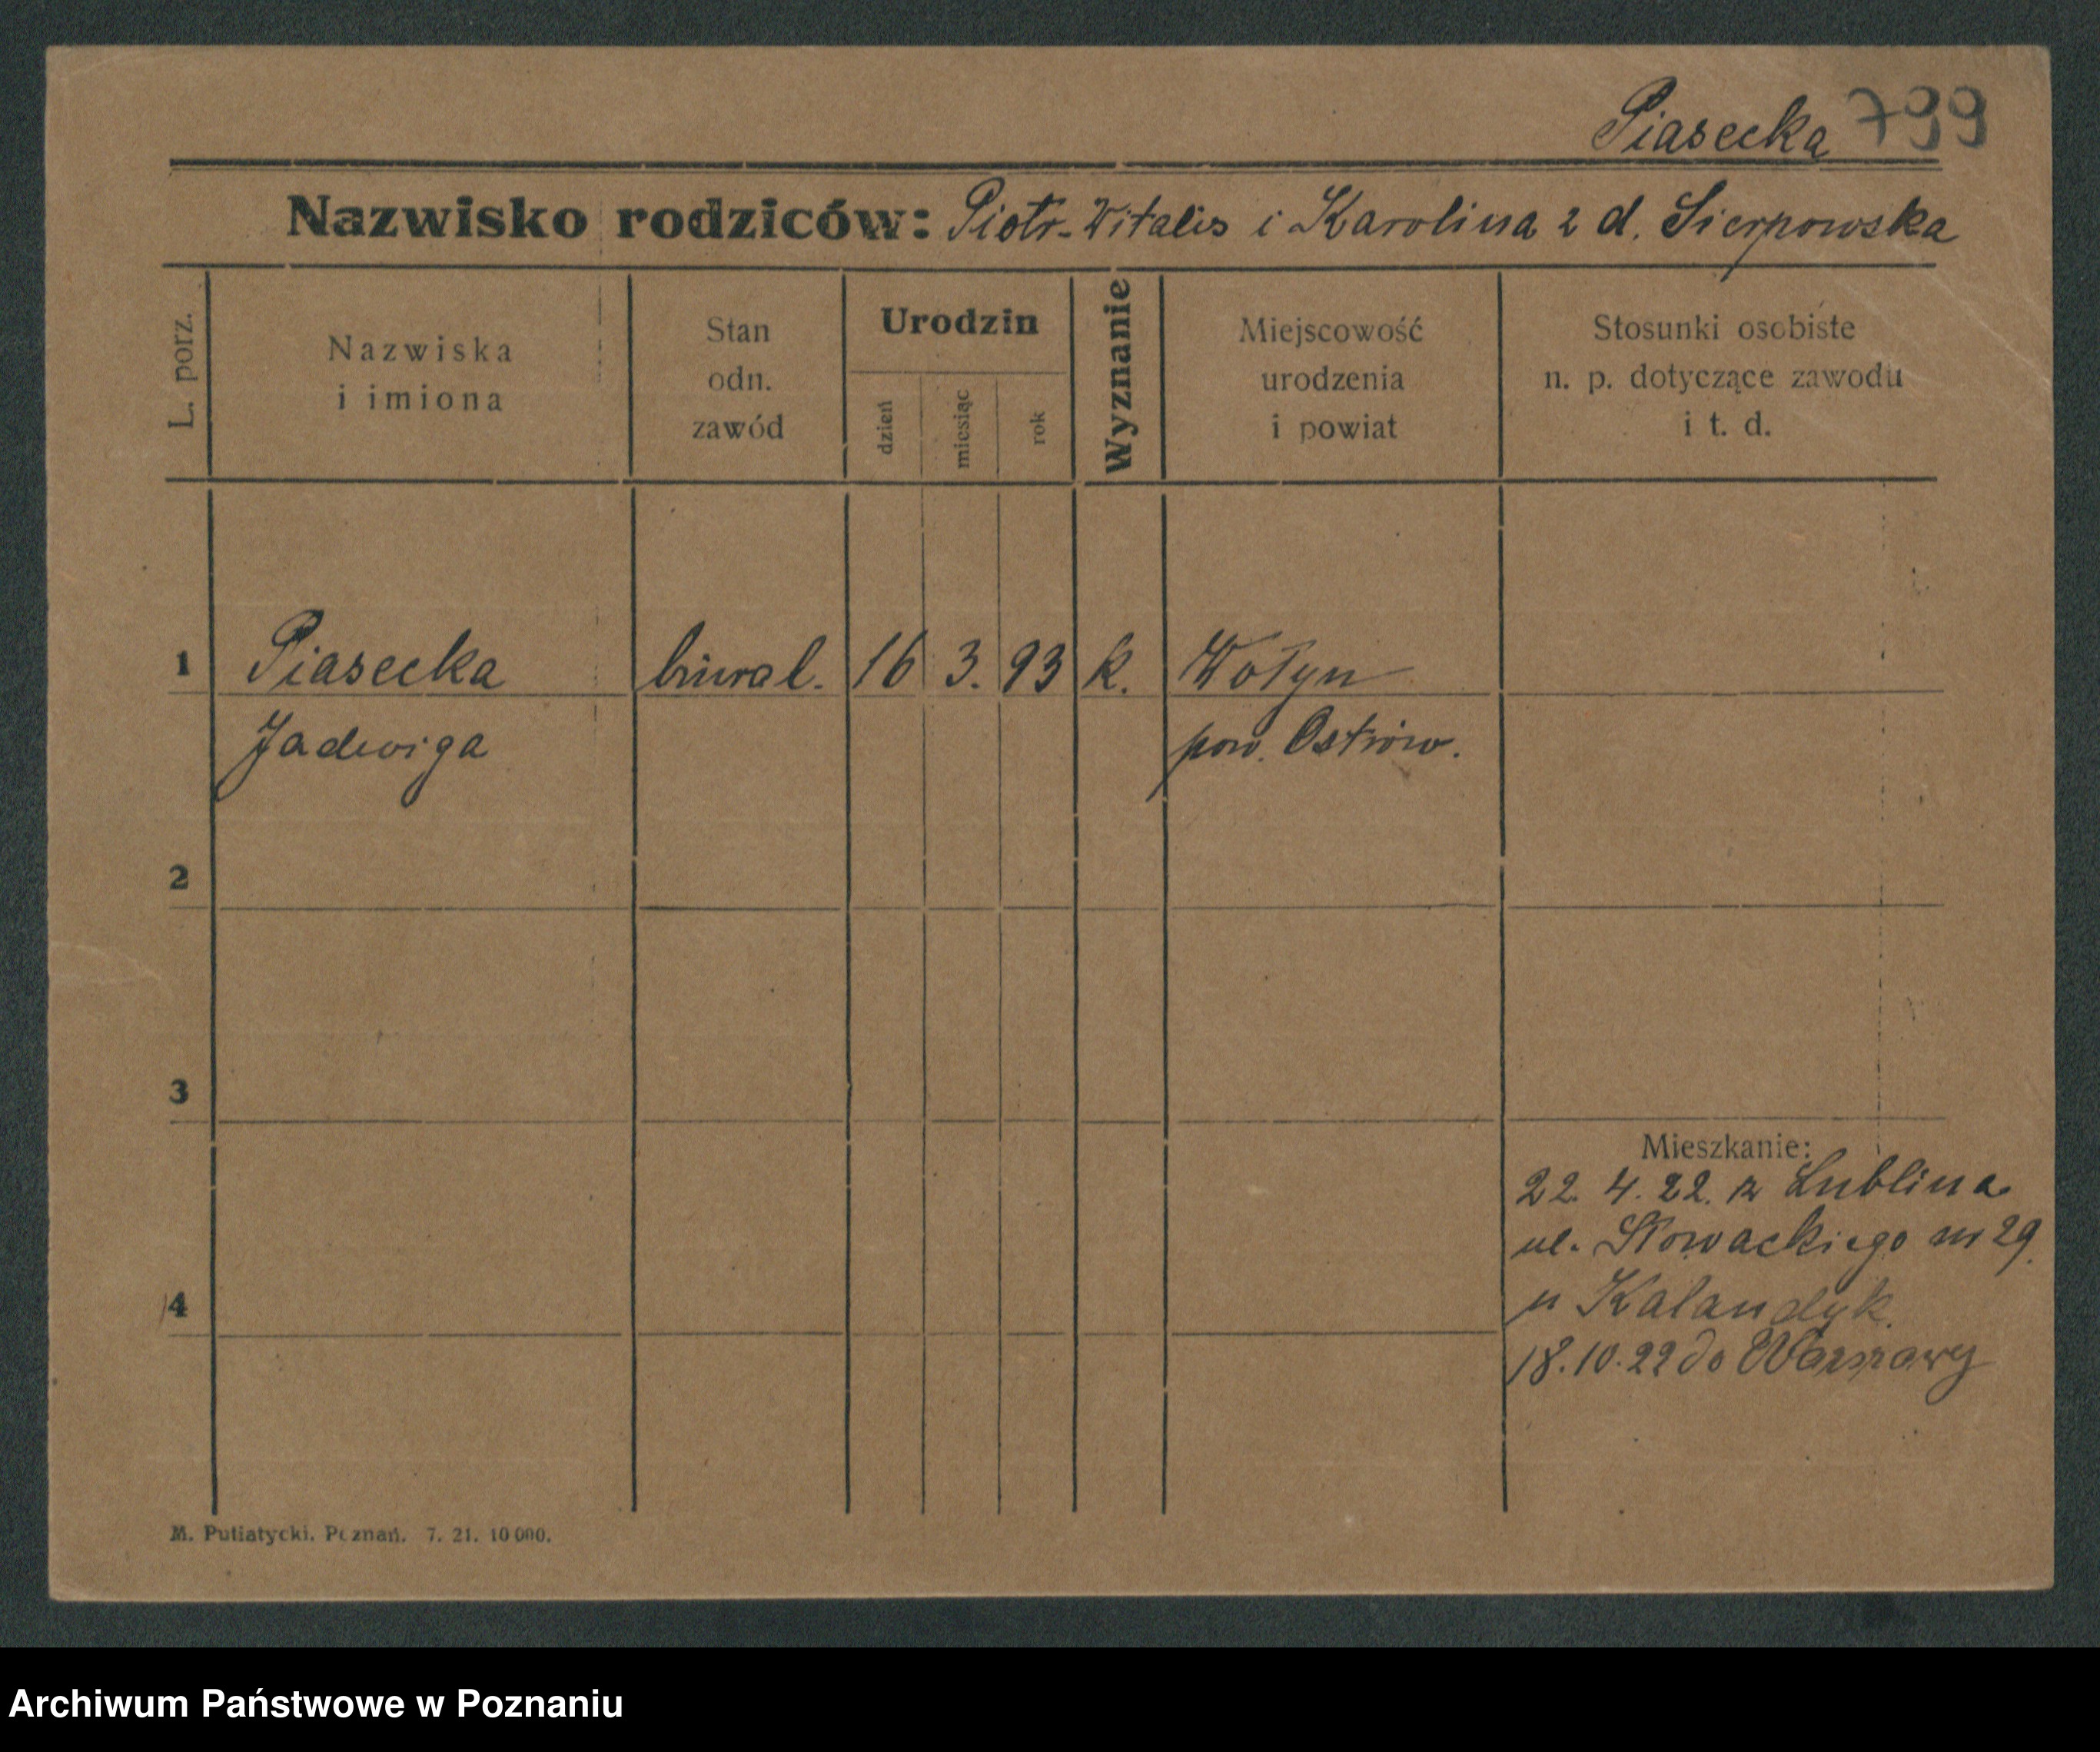 Piasecka 799
Nazwisko rodziców: Piotr-Witalis i Karolina z d. Sierpowska
L. porz.
Nazwiska
i imiona
Stan
odn.
zawód
Urodzin
dzień
miesiąc
rok
Wyznanie
Miejscowość
urodzenia
i powiat
Stosunki osobiste
n. p. dotyczące zawodu
i t. d.
1 Piasecka biural. 16 3. 93 k. Wołyn
Jadwiga pow. Ostrów.
2
3
Mieszkanie:
22. 4. 22. z Lublina
ul. Słowackiego nr 29.
u Kalandyk.
4
18.10.22 do Warszawy
M. Putiatycki. Poznań. 7. 21. 10 000.
Archiwum Państwowe w Poznaniu